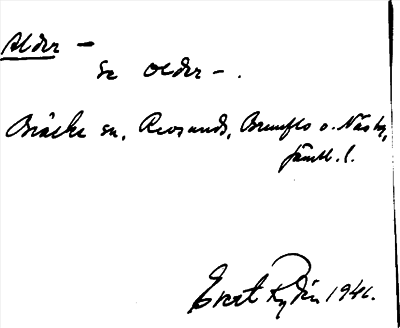 Alder -
se Older - .
Bräcke sn, Revsunds, Brunflo o. Näs sn,
Jämtl. l.
Evert Rydin 1941.